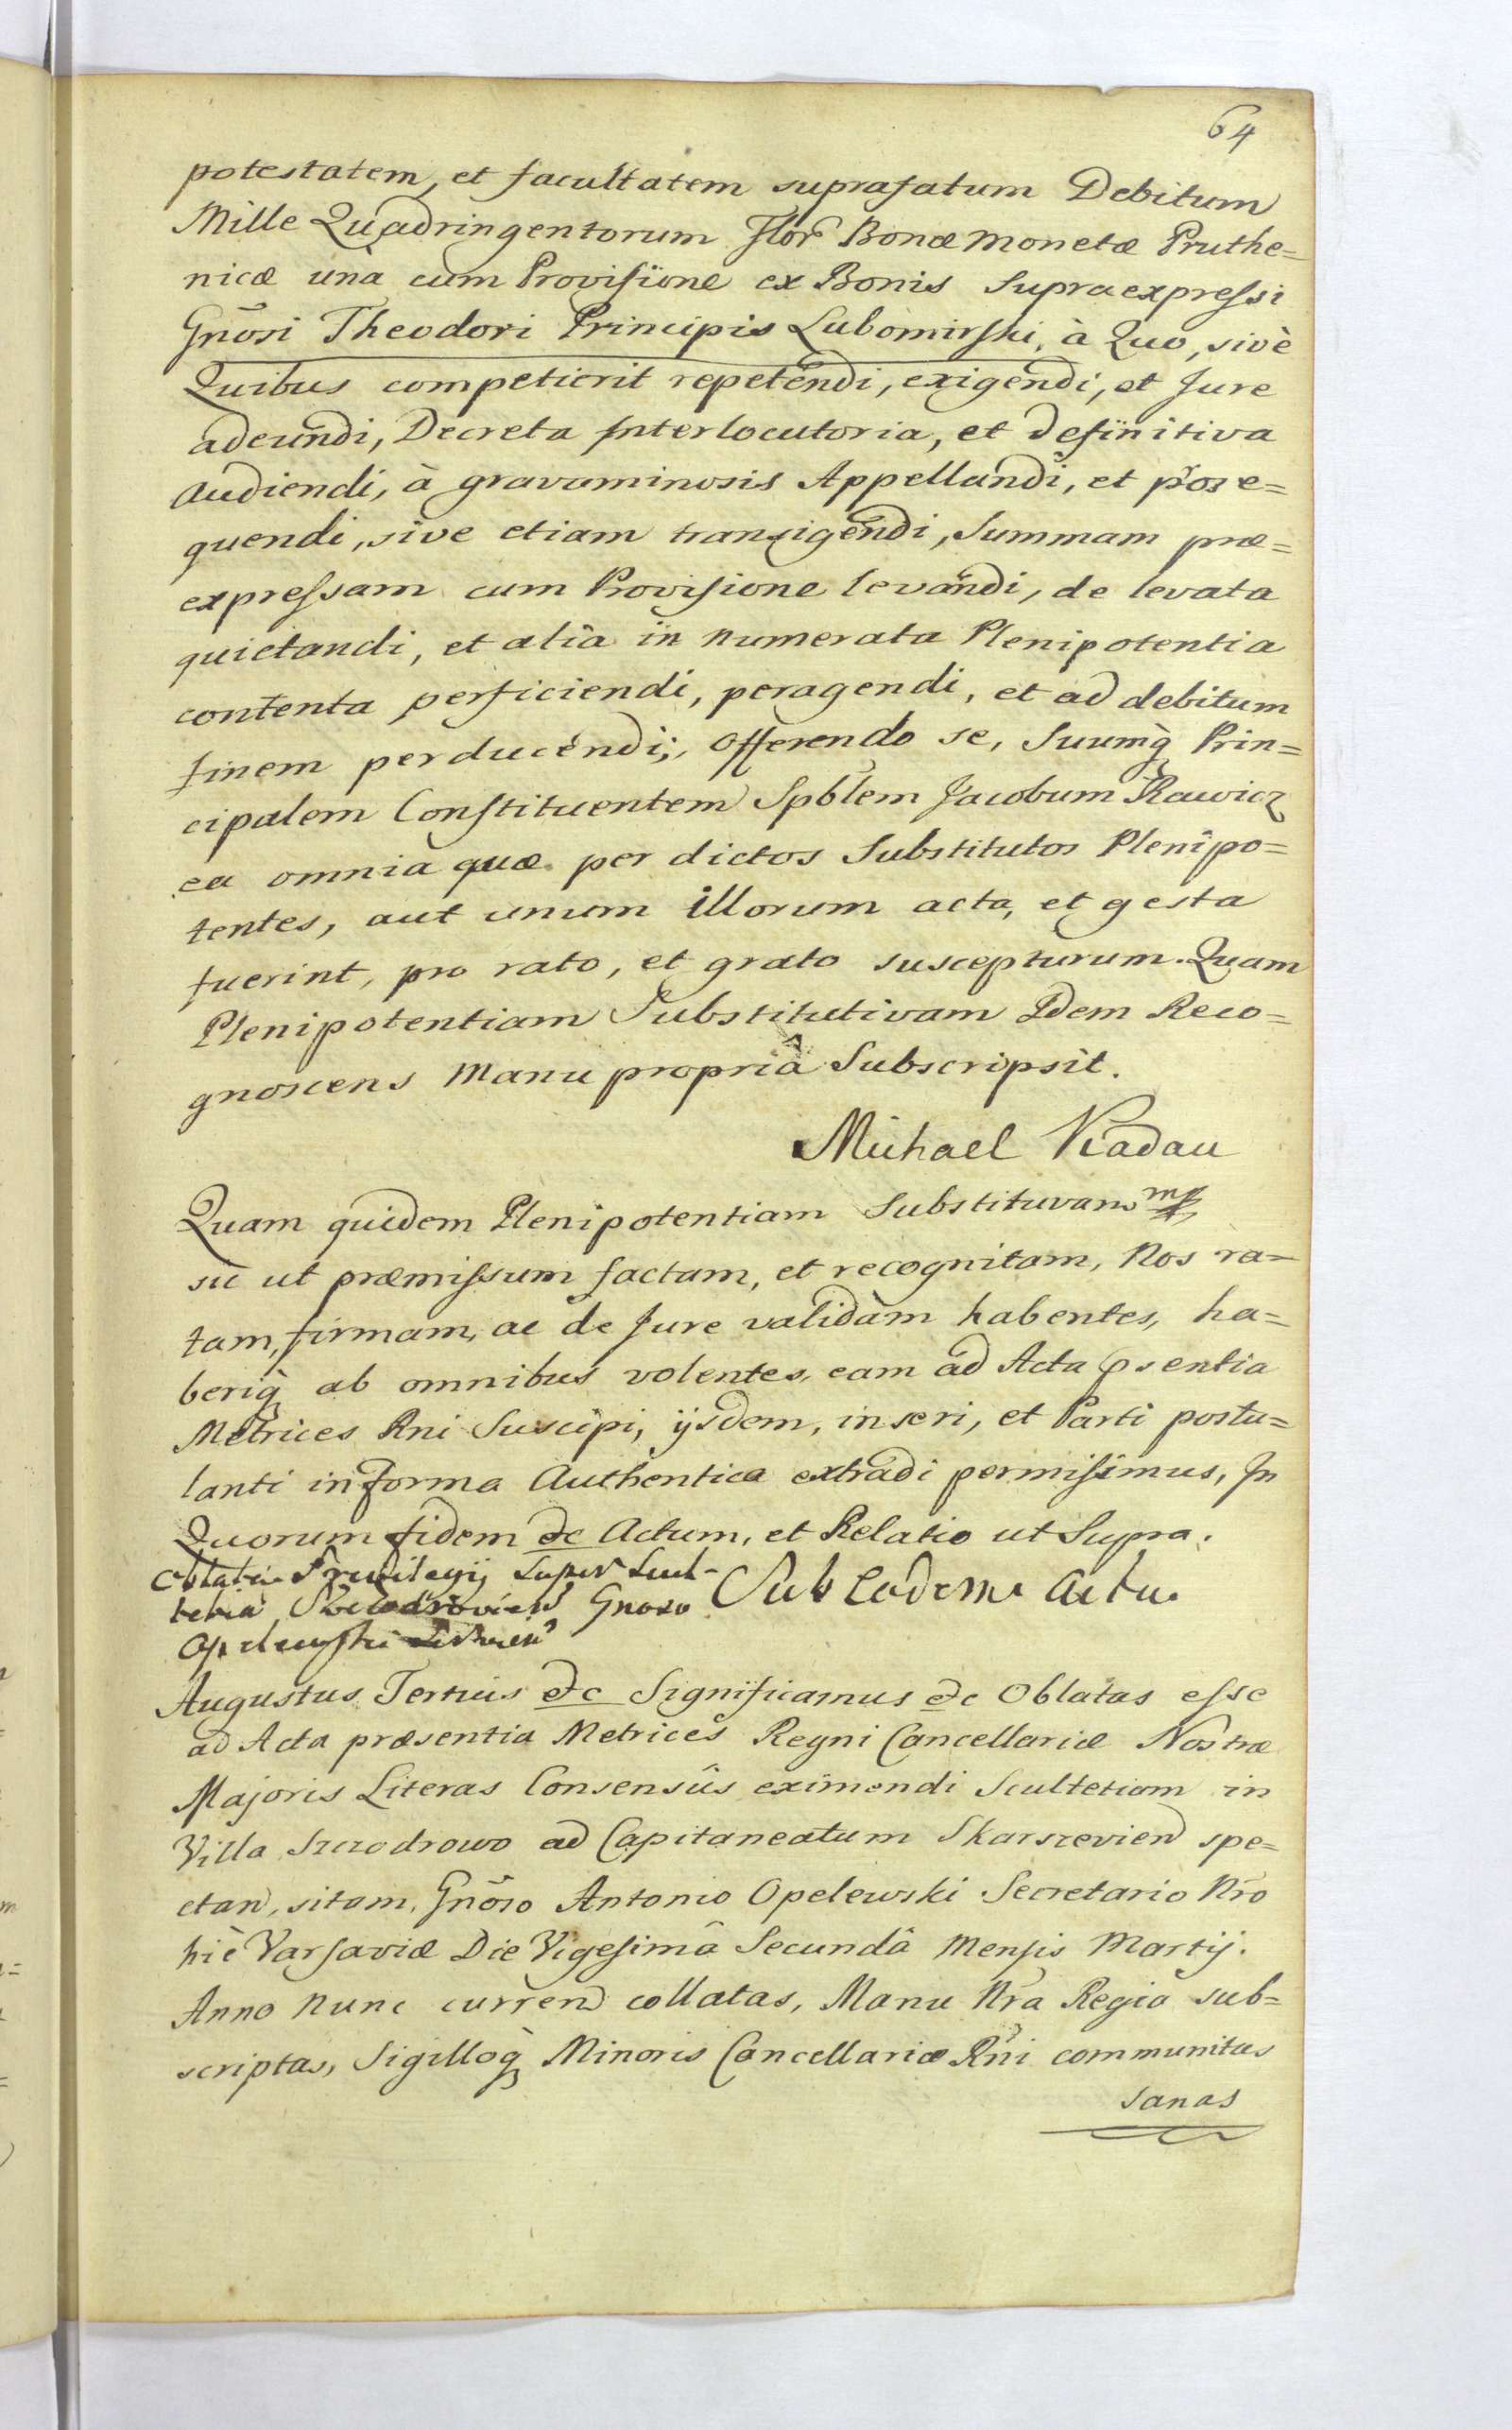 64
potestatem, et facultatem suprafatum Debitum
Mille Quadringentorum Flor Bonæ monetæ Pruthe=
nicæ unà cum Provisione ex Bonis supraexpressi
Gnosi Theodori Principis Lubomirski, à Quo, sivè
Quibus competierit repetendi, exigendi, et Jure
adeundi, Decreta Interlocutoria, et definitiva
audiendi, à gravaminosis Appellandi, et prose=
quendi, sive etiam transigendi, Summam præ=
expressam cum Provisione levandi, de levata
quietandi, et alia in numerata Plenipotentia
contenta perficiendi, peragendi, et ad debitum
finem perducendi; Offerendo se, Suumq Prin=
cipalem Constituentem Spblem Jacobum Rawicz
ea omnia quæ per dictos Substitutos Plenipo=
tentes, aut unum illorum acta, et gesta
fuerint, pro rato, et grato suscepturum. Quam
Plenipotentiam Substitutivam Idem Reco=
gnoscens Manu propriâ Subscripsit.
Michael Kadau
mp
Quam quidem Plenipotentiam Substituvam
sic ut præmissum factam, et recognitam, Nos ra=
tam, firmam, ac de Jure validam habentes, ha=
beriq ab omnibus volentes, eam ad Acta psentia
Metrices Rni Suscipi, ijsdem, inseri, et Parti postu=
lanti in forma Authentica extradi permisimus, In
Quorum fidem &c Actum, et Relatio ut Supra.
Oblata Privilegij super Scul-
tetia Gnoso
Opelewski
Sub eodem actu
Augustus Tertius &c Significamus &c Oblatas esse
ad Acta præsentia Metrices Regni Cancellariæ Nostræ
Majoris Literas Consensûs eximendi Scultetiam in
Villa Szczodrowo ad Capitaneatum Skarszevien spe=
ctan, sitam, Gnoso Antonio Opelewski Secretario Nro
hic Varsaviæ Die Vigesimâ Secundâ Mensis Martij.
Anno nunc curren collatas, Manu Nra Regia sub=
scriptas, Sigilloq Minoris Cancellariæ Rni communitas
sanas